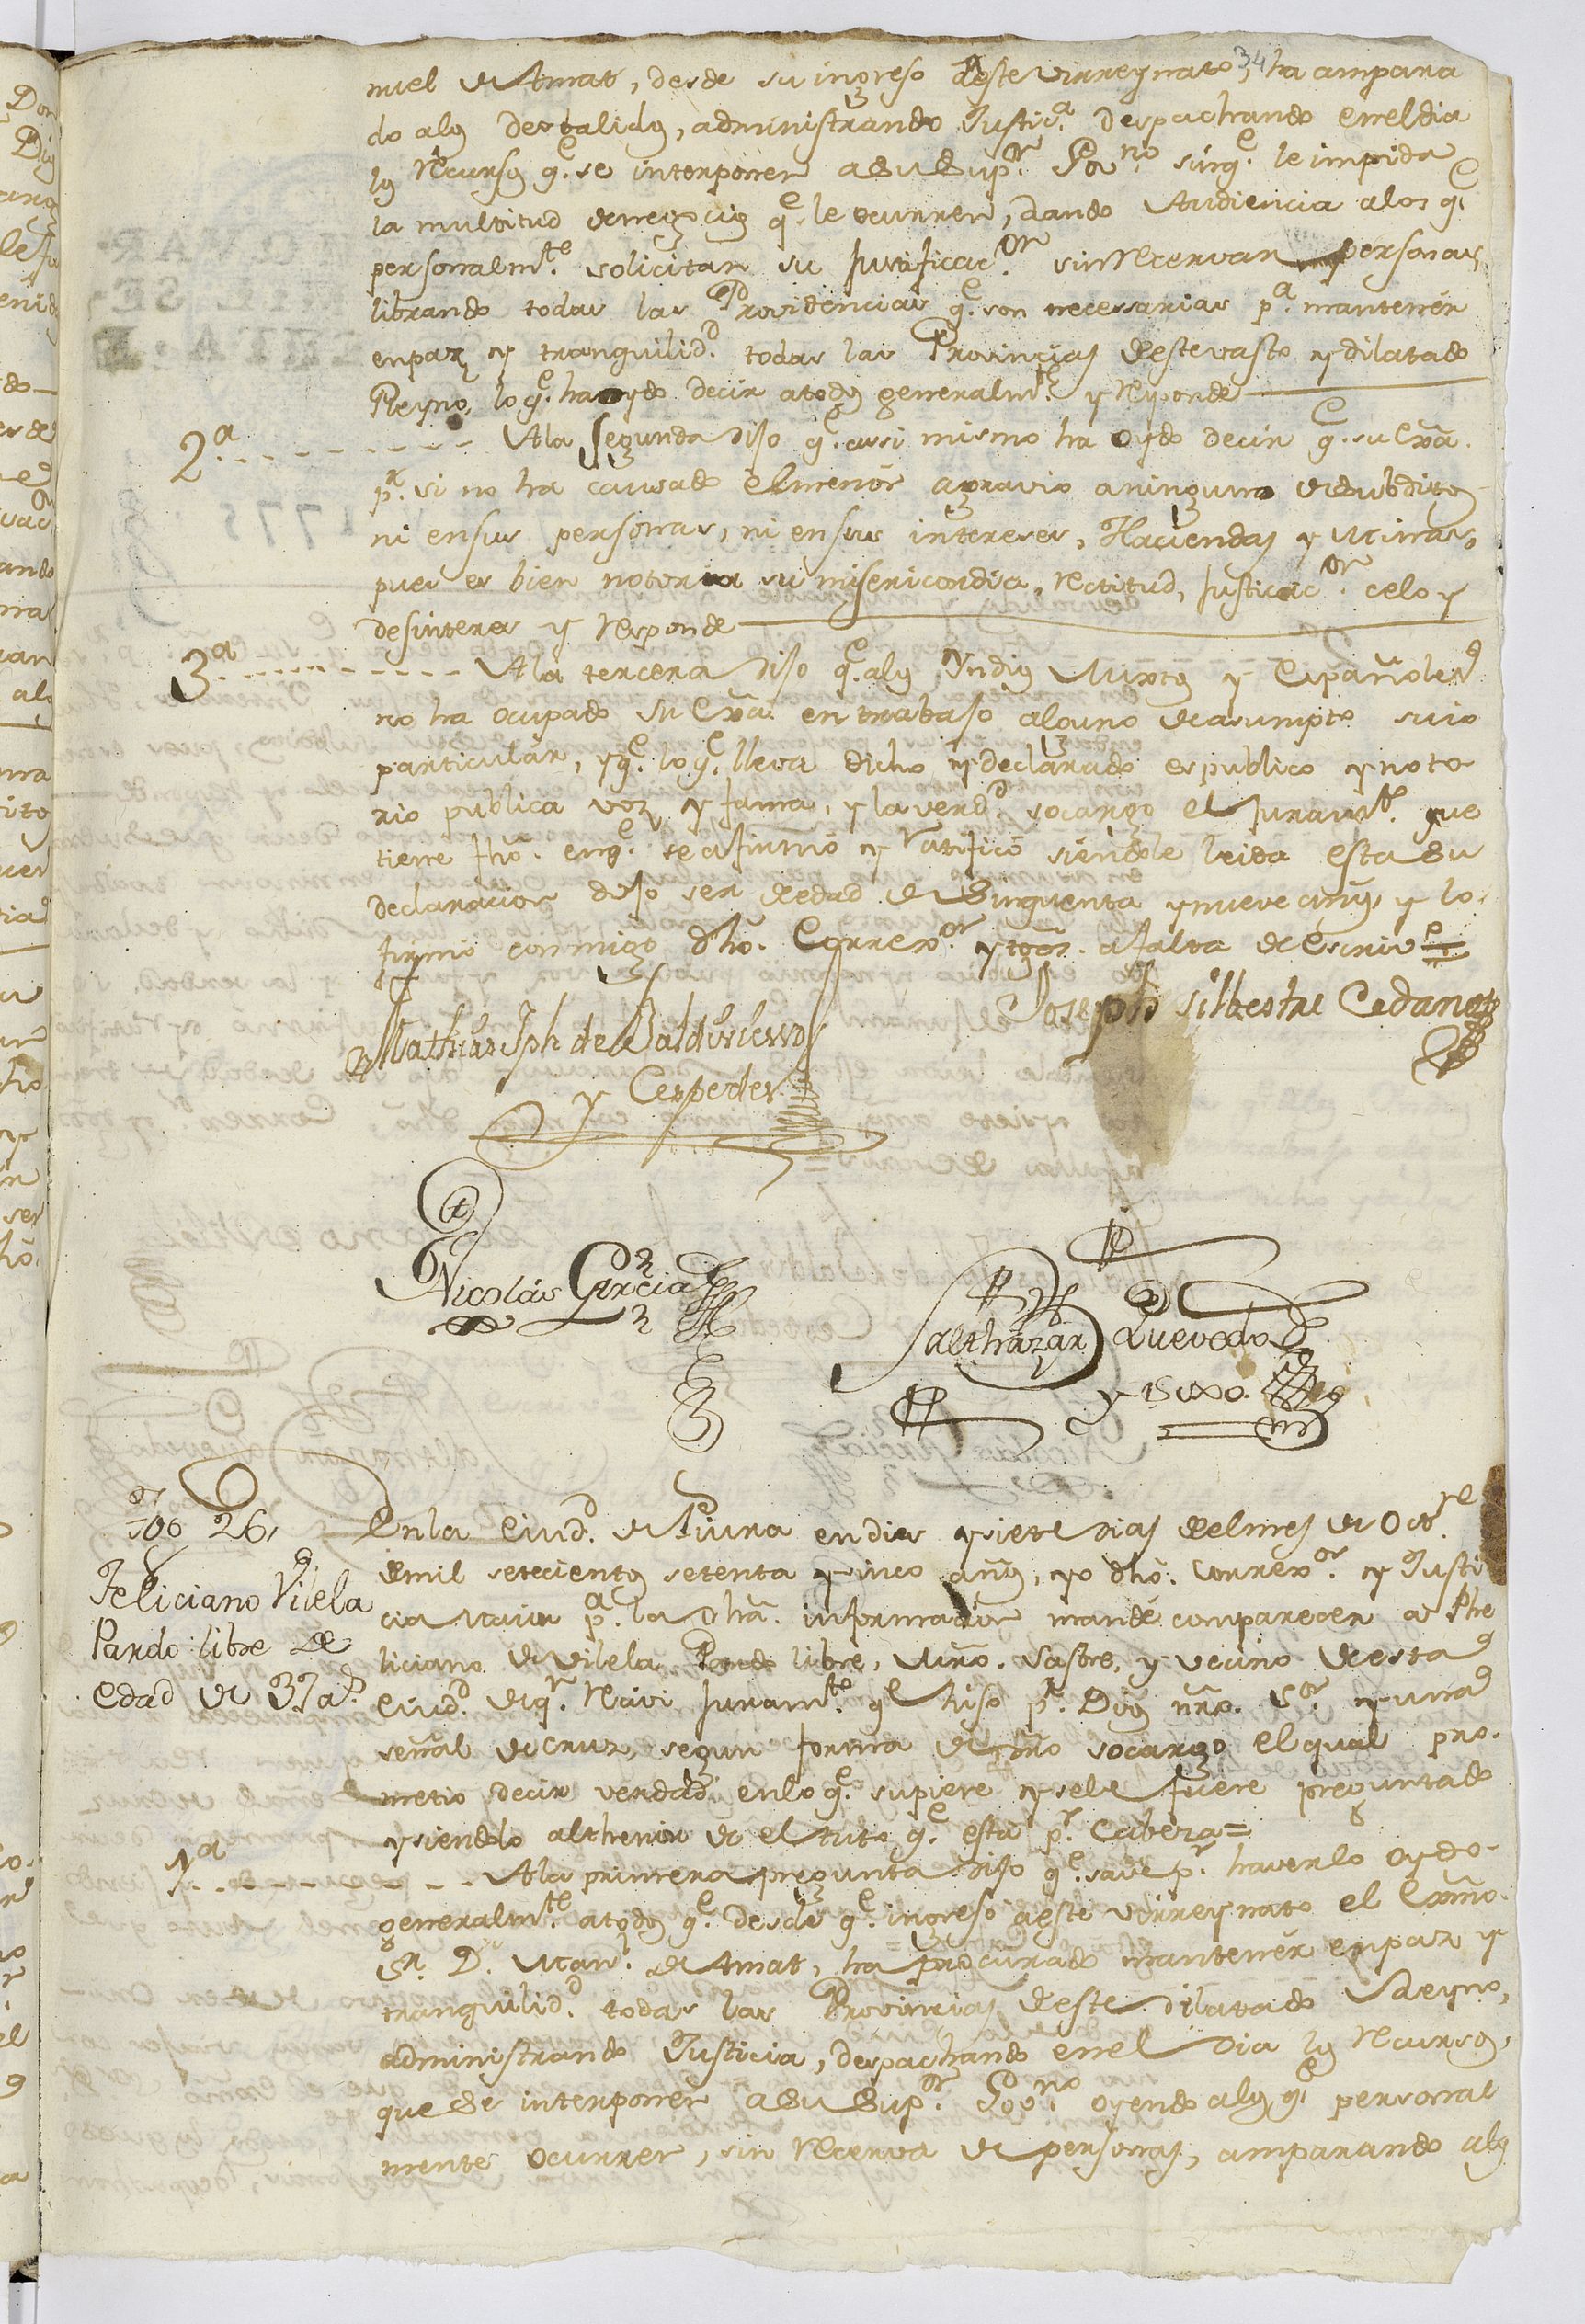 34
nuel de Amat, desde su ingreso a este virreynato, ha ampara
do alos desbalidos, administrando Justica. Despachando en el dia
los Recursos qe. se interponen a su Supor. Govno. sin qe. le impida
la multitud de negocios qe. le ocurren, dando Audiencia alos qe
personalmte. solicitan su Justificacon. sin Recervar personas,
librando todas las Providencias qe. son necessarias pa. mantener
en paz y tranquilidd. todas las Provincias de este vasto y dilatado
Reyno, lo qe. ha oydo decir a todos generalmte. y Responde
2a. Ala segunda dijo qe. assi mismo ha oydo decir qe. su Exa.
pr. si no ha causado el menor agravio a ninguno de sus subditos
ni en sus personas, ni en sus intereses, Haciendas y Minas,
pues es bien notoria su misericordia, Rectitud, Justicacon. celo y
desinteres y Responde
3a. Ala tercera dijo qe. alos Yndios Mixtos y Españoles
no ha ocupado su Exa. en trabajo alguno de asumpto suio
particular, y qe. lo qe. lleva dicho y declarado es publico y noto
rio publica voz y fama, y la verdd. socargo el Juramto. que
tiene fho. en qe. se afirmó y Ratificó siendole leida esta su
declaracion dijo ser de edad de sinquenta y nueve años, y lo
firmó conmigo dho. Correxor. y tgos. a falta de Escrive =
Mathias Jph de Baldivieso
y Cespedes
Joseph Silbestre Cedano
Nicolás Garcia
Balthazar Quevedo
y
En la Ciudd. de Piura en dies y siete dias del mes de Octre.
de mil setecientos setenta y sinco años, yo dho. Correxor. y Justi
cia maior pa. la dha. informacion mandé comparecer a Phe
liciano de Vilela Pardo libre, Mro. Sastre, y vecino de esta
Ciudd. de qn. Recivi Juramto. qe hiso pr. Dios nro. Sor. y una
señal de cruz, segun forma de dro socargo el qual pro-
metio decir verdad en lo qe. supiere y se le fuere preguntado
y siendolo al thenor de el auto qe. está pr. Cabeza =
Tgo 26,
Feliciano Vilela
Pardo libre de
edad de 37 as.
1a. Ala primera pregunta dijo qe. save pr. haverlo oydo
generalmte. a todos qe. desde qe. ingreso a este virreynato el Exmo.
Sr. Dn. Manl. de Amat, ha procurado mantener en paz y
tranquilidd. todas las Provincias de este dilatado Reyno,
administrando Justicia, despachando en el dia los Recursos,
que se interponen a su Supor. Govno. oyendo alos qe personal
mente ocurren, sin Recerva de personas, amparando alos